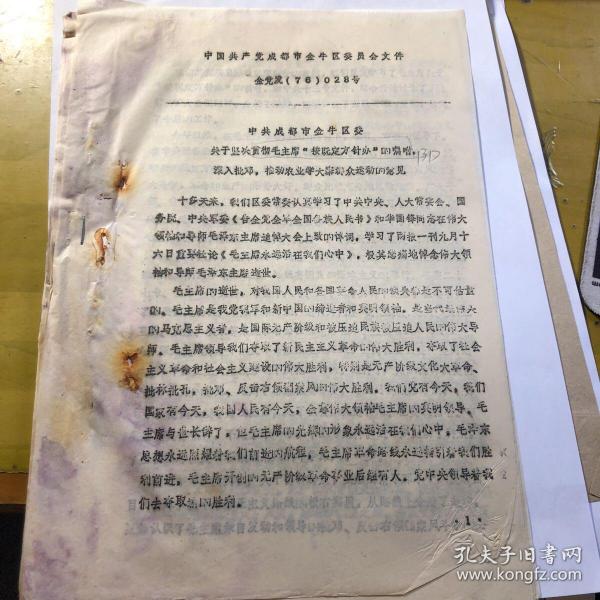 中国共产党成都市金牛区委员会文件
金党发(76)028号
中共成都市金牛区委
关于坚决贯彻毛主席“按既定方针办”的嘱咐,
深入批邓,推动农业学大寨群众运动的意见
十多天来,我们区委常委认真学习了中共中央、人大常委会、国
务院、中央军委《告全党全军全国各族人民书》和华国锋同志在伟大
领袖和导师毛泽东主席追悼大会上致的悼词,学习了两报一刊九月十
六日重要社论《毛主席永远活在我们心中》,极其悲痛地悼念伟大领
袖和导师毛泽东主席逝世。
毛主席的逝世,对我国人民和各国革命人民的损失都是不可估量
的。毛主席是我党我军和新中国的缔造者和英明领袖。是当代最伟大
的马克思主义者,是国际无产阶级和被压迫民族被压迫人民的伟大导
师。毛主席领导我们夺取了新民主主义革命的伟大胜利,夺取了社会
主义革命和社会主义建设的伟大胜利,特别是无产阶级文化大革命、
批林批孔,批邓、反击右倾翻案风的伟大胜利。我们党有今天,我们
国家有今天,我国人民有今天,全靠伟大领袖毛主席的英明领导。毛
主席与世长辞了,但毛主席的光辉的形象永远活在我们心中,毛泽东
思想永远照耀着我们前进的航程,毛主席革命路线永远指引着我们胜
利前进,毛主席开创的无产阶级革命事业后继有人。党中央领导着我
们去夺取新的胜利。
·1·
孔夫子旧书网
www.kongfz.com